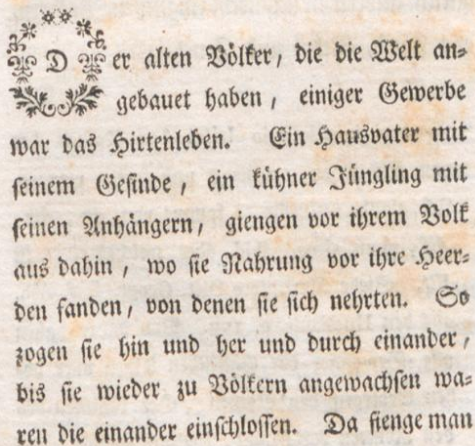 Der alten Völker, die die Welt an-
gebauet haben, einiger Gewerbe
war das Hirtenleben. Ein Hausvater mit
seinem Gesinde, ein kühner Jüngling mit
seinen Anhängern, giengen vor ihrem Volk
aus dahin, wo sie Nahrung vor ihre Heer-
den fanden, von denen sie sich nehrten. So
zogen sie hin und her und durch einander,
bis sie wieder zu Völkern angewachsen wa-
ren die einander einschlossen. Da fienge man